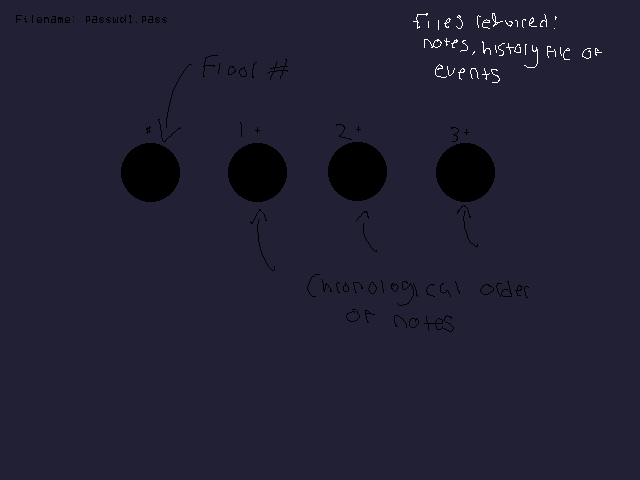 Filename: passwd1.pass
files required:
notes, history file of
events
Floor #
* 1 + 2 + 3 +
Chronological order
of notes